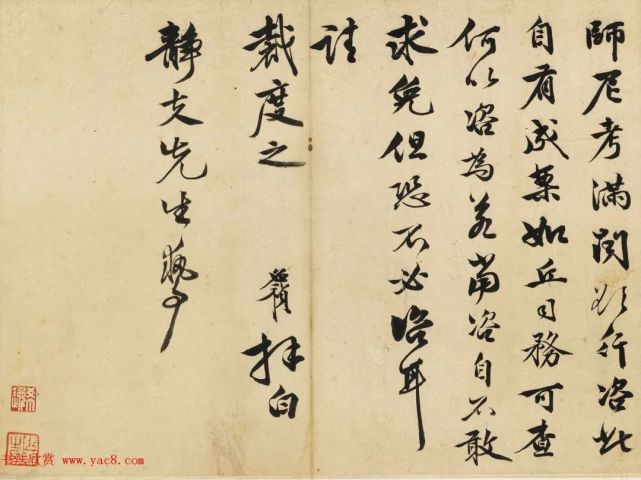 師尼考滿関欲行咨此
自有成案如丘司務可查
何以咨為若需咨自不敢
求免但恐不必咨耳
請
裁度之
拜白
静夫先生執事
书法欣赏 www.yac8.com